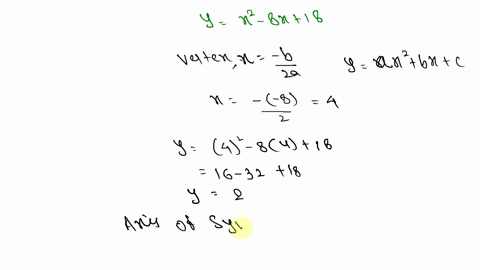 y = x² - 8x + 18
Vertex, x = -b/2a    y = ax² + bx + c
x = -(-8)/2 = 4
y = (4)² - 8(4) + 18
= 16 - 32 + 18
y = 2
Axis of Sy